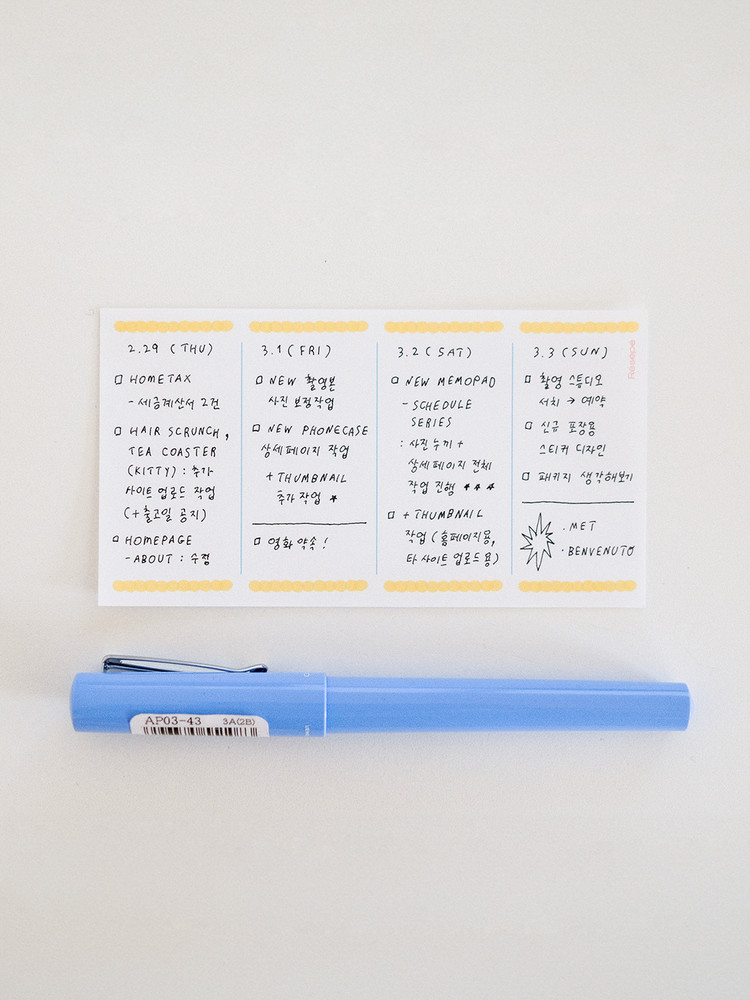 2.29 (THU)
□ HOMETAX
- 세금계산서 2건
□ HAIR SCRUNCH,
TEA COASTER
(KITTY) : 추가
사이트 업로드 작업
(+출고일 공지)
□ HOMEPAGE
- ABOUT : 수정
3.1 (FRI)
□ NEW 촬영분
사진 보정작업
□ NEW PHONECASE
상세페이지 작업
+ THUMBNAIL
추가 작업 ★
□ 영화 약속!
3.2 (SAT)
□ NEW MEMOPAD
- SCHEDULE
SERIES
: 사진 누끼 +
상세페이지 전체
작업 진행 ★★★
□ + THUMBNAIL
작업 (홈페이지용,
타 사이트 업로드용)
3.3 (SUN)
□ 촬영 스튜디오
서치 → 예약
□ 신규 포장용
스티커 디자인
□ 패키지 생각해보기
· MET
· BENVENUTO
AP03-43 3A(2B)